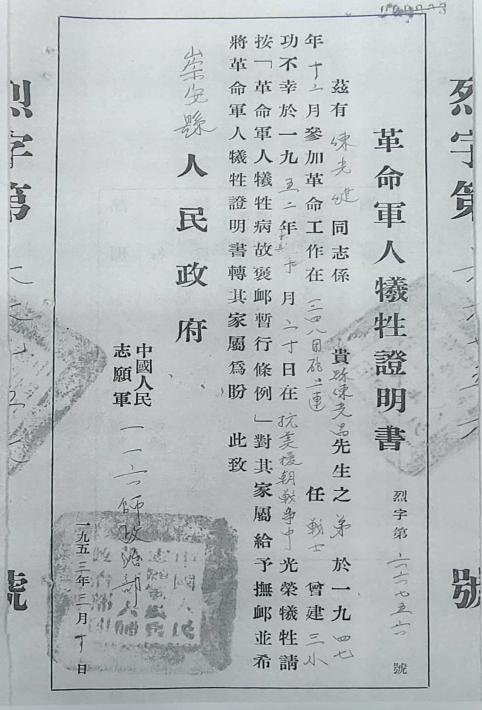 革命軍人犧牲證明書
烈字第 六六七五六 號
茲有 陳光健 同志係 貴縣陳光昌先生之 弟 於一九 四七
年 十二 月參加革命工作在 三四八团砲二連 任 戰士 曾建 三小
功不幸於一九 五二 年 月 二十 日在 抗美援朝戰爭中 光榮犧牲請
按「革命軍人犧牲病故褒卹暫行條例」對其家屬給予撫卹並希
將革命軍人犧牲證明書轉其家屬爲盼 此致
崇安縣 人民政府
中國人民
志願軍 一一六師政治部
一九五三年三月十日
烈字第
號
烈字第
號